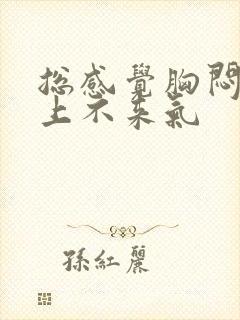 總感覺胸悶
上不來氣
孫紅麗